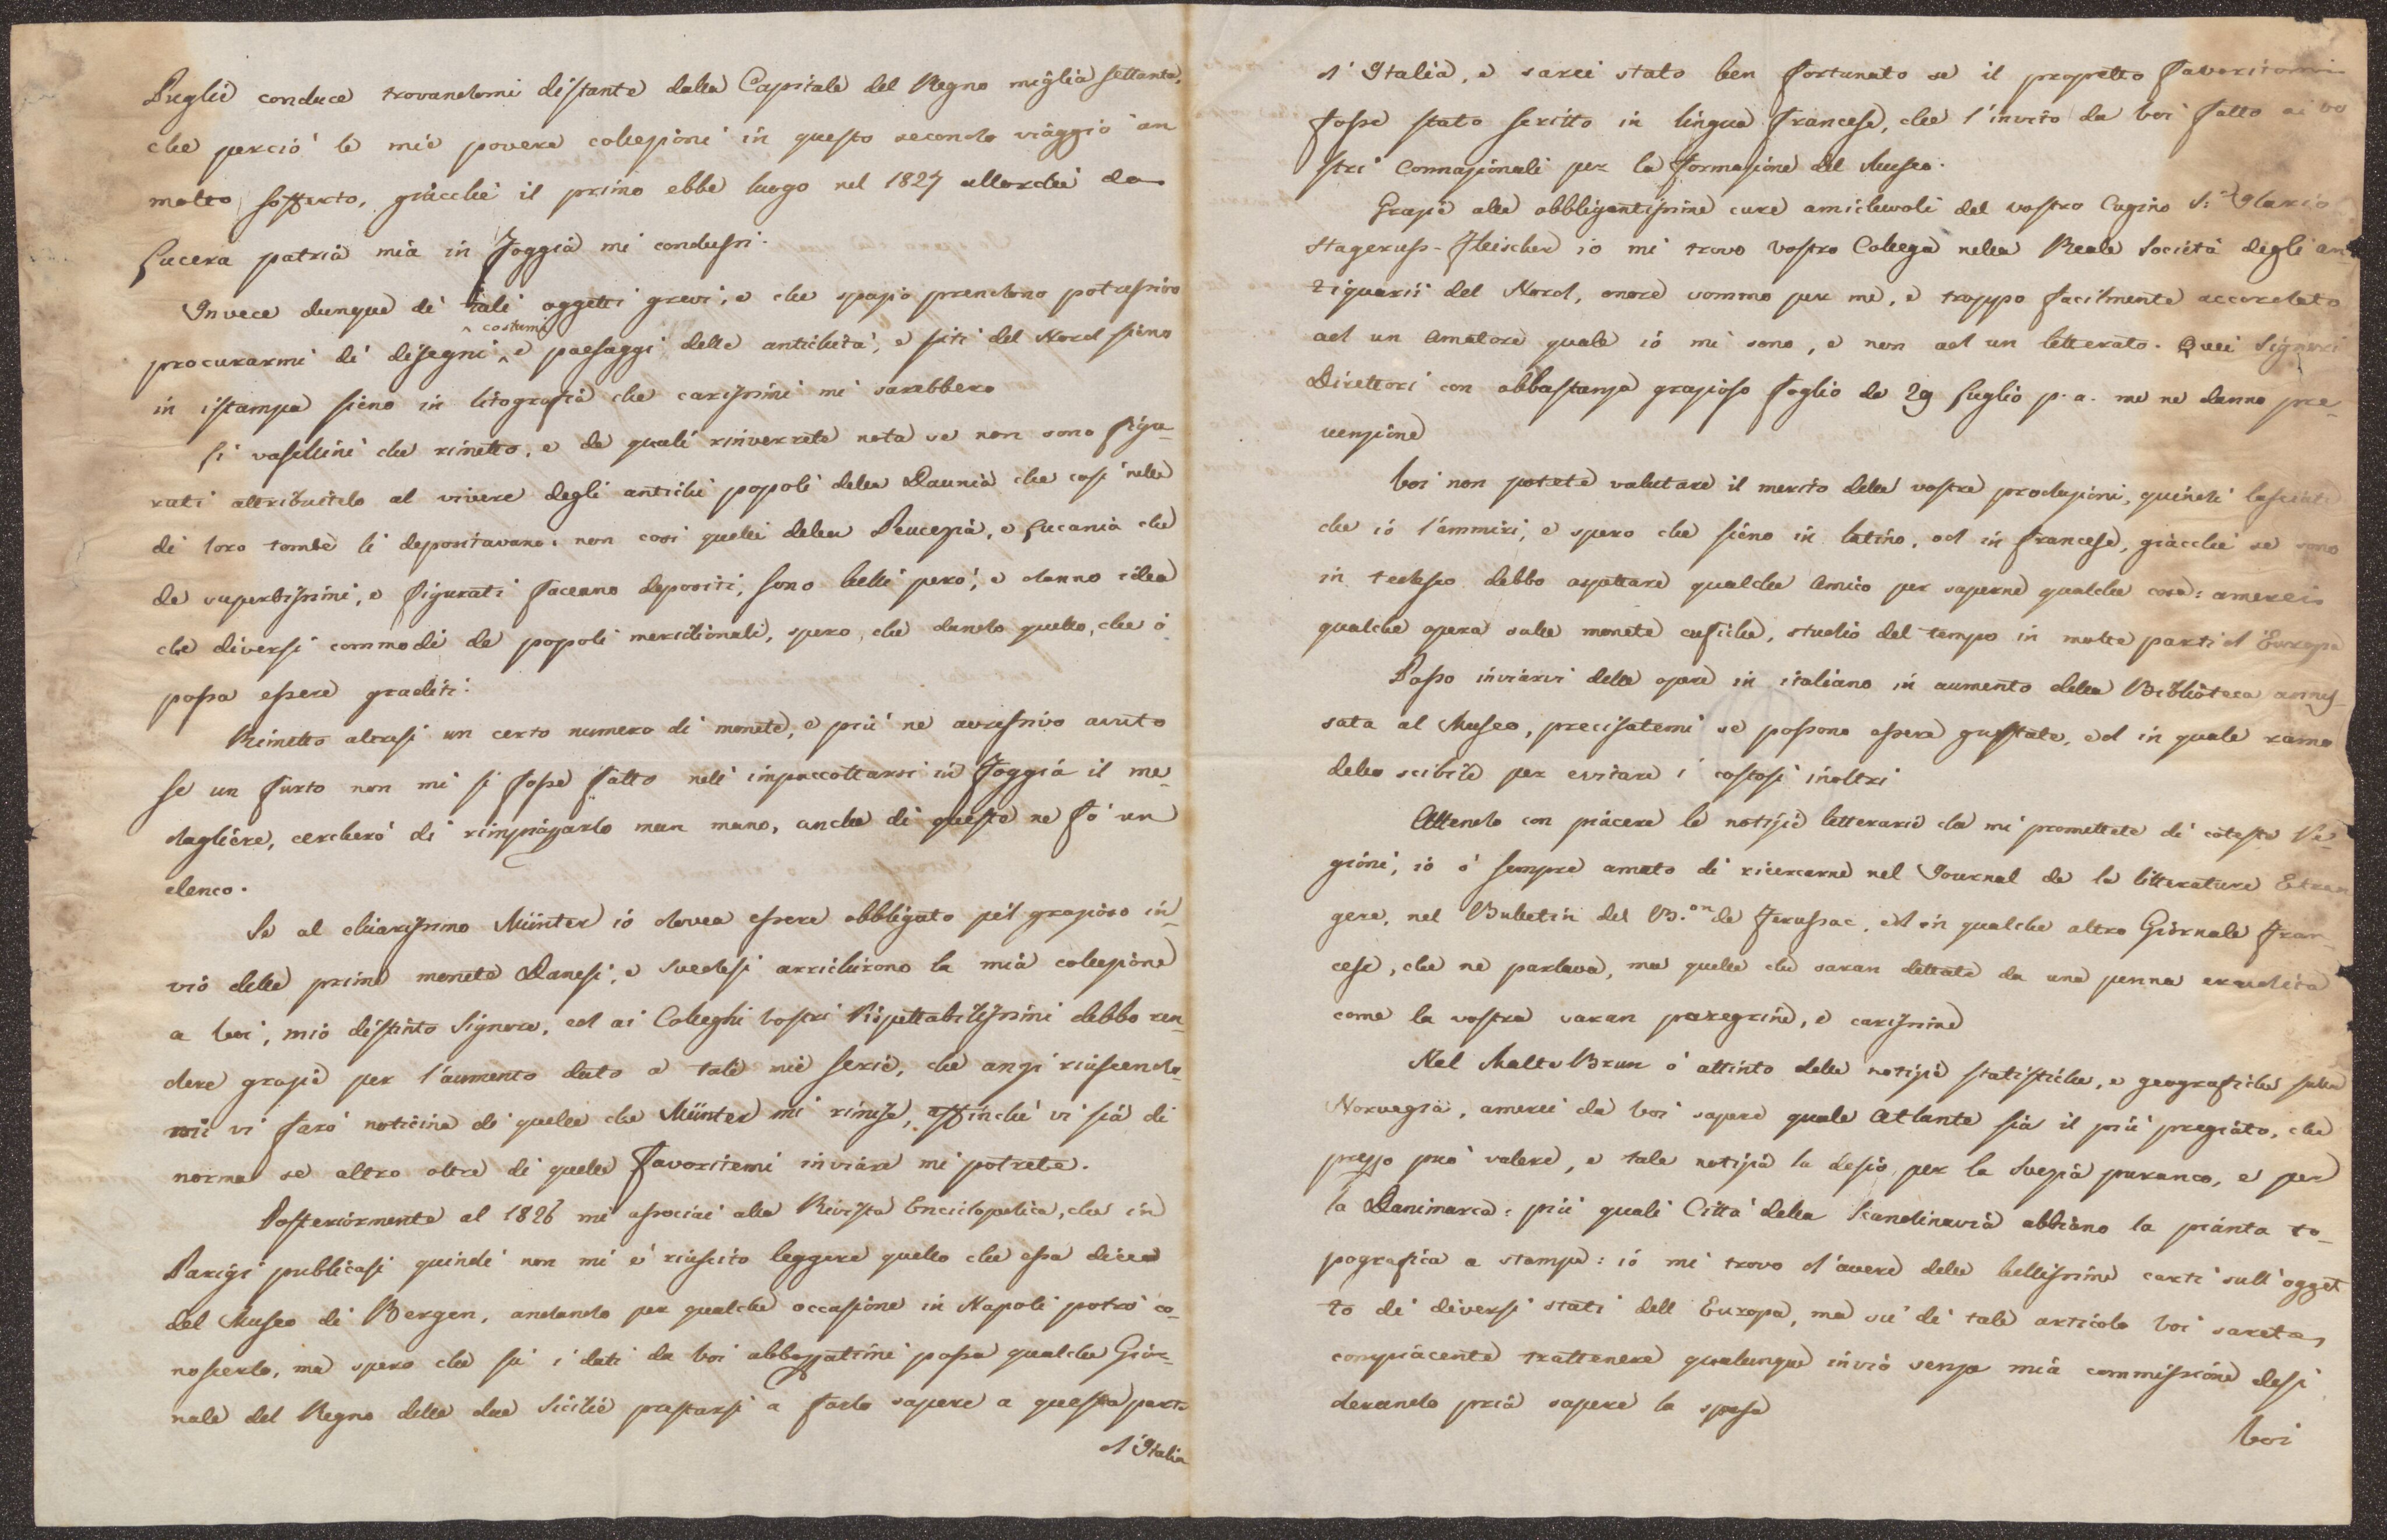 Puglie conduce trovandomi distante dalla Capitale del Regno miglia settanta,
che perciò le mie povere collezioni in questo secondo viaggio an
molto sofferto, giacchè il primo ebbe luogo nel 1827 allorchè da
Lucera patria mia in Foggia mi condussi.
Invece dunque di tali oggetti grevi, e che spazio prendono potressivo
procurarmi di disegni, costumi e paesaggi delle antichità, e siti del Nord sieno
in istampa sieno in litografia che carissimi mi sarebbero
Li vasellini che rimetto, e de quali rinverrete nota se non sono figu-
rati attribuitelo al vivere degli antichi popoli della Daunia che così nelle
di loro tombe li depositavano: non così quelli della Peucezia, e Lucania che
de superbissimi, e figurati faceano depositi, sono belli però, e danno idea
che diversi commodi de popoli meridionali, spero, che dando quello, che ò
possa essere graditi.
Rimetto altresì un certo numero di monete, e più ne avressivo avuto
se un furto non mi si fosse fatto nell' impaccottarsi in Foggia il me-
dagliere, cercherò di rimpiazzarlo man mano, anche di queste ne fò un
elenco.
Se al chiarissimo Münter io dovea essere obbligato pel grazioso in-
vio delle prime monete Danesi, e Svedesi arrichirono la mia collezione
a voi, mio distinto Signore, ed ai Colleghi vostri Rispettabilissimi debbo ren-
dere grazie per l'aumento dato a tale mie serie, che anzi riuscendo-
mi vi farò noticina di quelle che Münter mi rimise, affinchè vi sia di
norma se altro oltre di quelle favoritemi inviare mi potrete.
Posteriormente al 1826 mi associai alla Rivista Enciclopedica, che in
Parigi publicasi quindi non mi è riuscito leggere quello che essa dicea
del Museo di Bergen, andando per qualche occasione in Napoli potrò co-
noscerlo, ma spero che su i dati da voi abbozzatimi possa qualche Gior-
nale del Regno delle due Sicilie prestarsi a farlo sapere a questa parte
d'Italia
d'Italia, e sarei stato ben fortunato se il propetto favoritomi
fosse stato scritto in lingua francese, che l'invito da voi fatto ai vo
stri Connazionali per la formazione del Museo.
Grazie alle obbligantissime cure amichevoli del vostro Cugino S.r Ilario
Stageruss-Fleischer io mi trovo vostro Collega nella Reale Società degli an-
tiquarii del Nord, onore sommo per me, e troppo facilmente accordato
ad un Amatore quale io mi sono, e non ad un letterato. Quei Signori
Direttori con abbastanza grazioso foglio de 29 Luglio p.a. me ne danno pre-
venzione
Voi non potete valutare il merito delle vostre produzioni, quindi lasciate
che io l'ammiri, e spero che sieno in latino, od in francese, giacchè se sono
in tedesco debbo aspettare qualche Amico per saperne qualche cosa: amerei
qualche opera sulle monete cufiche, studio del tempo in molte parti d'Europa
Posso inviarvi delle opere in italiano in aumento della Biblioteca annes-
sata al Museo, precisatemi se possono essere gustate, ed in quale ramo
dello scibile per evitare i costosi inoltri
Attendo con piacere le notizie letterarie che mi promettete di coteste Re-
gioni, io ò sempre amato di ricercarne nel Journal de la litterature Etran
gere, nel Bulletin del B.on de Ferussac, ed in qualche altro Giornale fran-
cese, che ne parlava, ma quelle che saran dettate da una penna erudita
come la vostra saran peregrine, e carissime
Nel Malte Brun ò attinto delle notizie statistiche, e geografiche sulla
Norvegia, amerei da voi sapere quale Atlante sia il più pregiato, che
prezzo può valere, e tale notizia la desio per la Svezia puranco, e per
la Danimarca: più quali Città della Scandinavia abbiano la pianta to-
pografica a stampa: io mi trovo d'avere delle bellissime carti sull'ogget
to di diversi stati dell Europa, ma su di tale articolo voi sarete
compiacente trattenere qualunque invio senza mia commissione desi
derando pria sapere la spesa
Voi